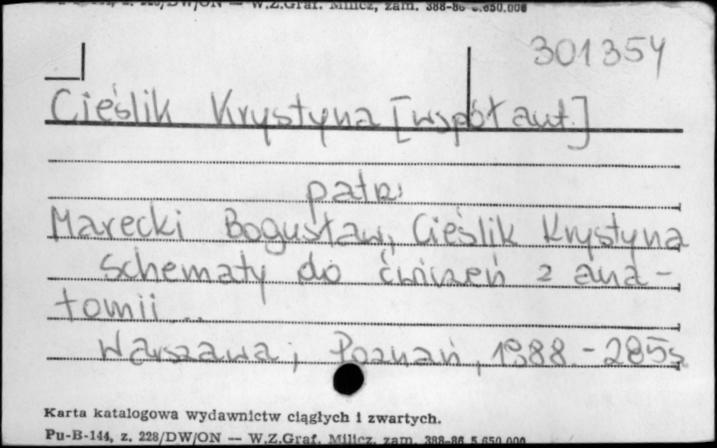 Pu-B-144, z. 228/DW/ON — W.Z.Graf. Milicz, zam. 388-86 5.650.000
301354
Cieślik Krystyna [współaut.]
patrz
Marecki Bogusław, Cieślik Krystyna
Schematy do ćwiczeń z ana-
tomii...
Warszawa; Poznań, 1988 - 285s
Karta katalogowa wydawnictw ciągłych i zwartych.
Pu-B-144, z. 228/DW/ON — W.Z.Graf. Milicz, zam. 388-86 5.650.000